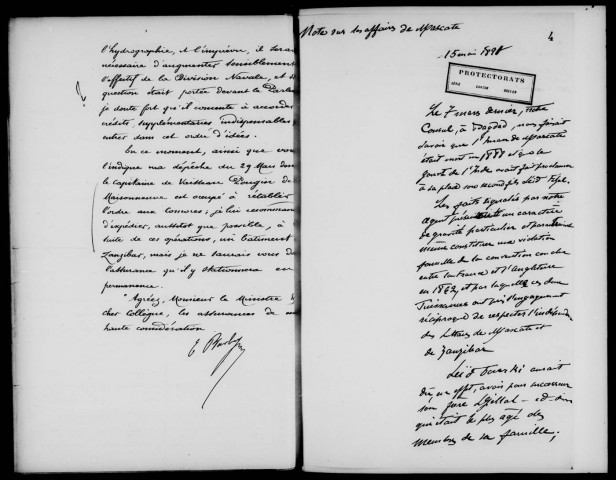 l'hydrographie, et l'imprévu, il serait
nécessaire d'augmenter sensiblement
l'effectif de la Division Navale, et si
question était portée devant le Parle
je doute fort qu'il consente à accorder
crédits supplémentaires indispensables
entrer dans cet ordre d'idées.
En ce moment, ainsi que vous
l'indique ma dépêche du 29 Mars der
le capitaine de Vaisseau
Maisonneuve est occupé à rétablir
l'ordre aux Comores; je lui recommande
d'expédier, aussitôt que possible, à
suite de ces opérations, un bâtiment
Zanzibar, mais je ne saurais vous do
l'assurance qu'il y stationnera en
permanence.
Agréez, Monsieur le Ministre
cher Collègue, les assurances de ma
haute considération
Note sur les affaires de Mascate
4
15 mai
PROTECTORATS
Le 7 mars dernier, notre
Consul, à Bagdad, nous faisait
savoir que l'Iman de Mascate
était mort en et que le
Gouvt de l'Inde avait fait proclamer
à sa place son second fils
Les faits signalés par notre
agent un caractère
de gravité particulier et
même constituer une violation
formelle de la convention conclue
entre la France et l'Angleterre
en 1862, et par laquelle ces deux
Puissances ont pris l'engagement
réciproque de respecter l'indépendance
des Sultans de Mascate et
de Zanzibar
aurait
dû, en effet, avoir pour successeur
son frère
qui était le plus agé des
membres de sa famille,